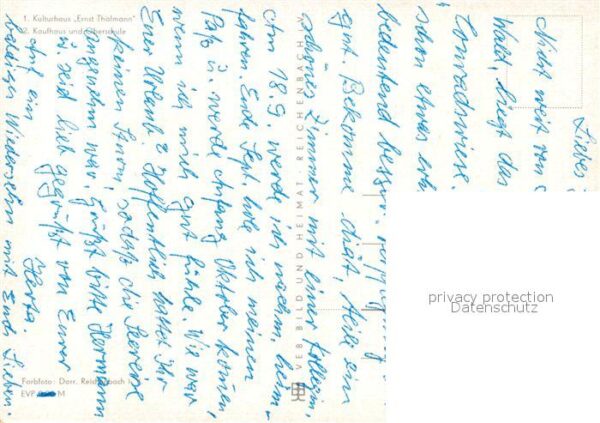 1. Kulturhaus „Ernst Thälmann"
2. Kaufhaus und Oberschule
Liebe
Nicht weit von
Wald, liegt das
Conradswiese.
schon etwas erh
bedeutend besser.
gut. Bekomme Diät, teile ein
schönes Zimmer mit einer Kollegin.
Am 18.9. werde ich wieder heim-
fahren. Ende Sept. hole ich meinen
Paß u. werde Anfang Oktober kommen,
wenn ich mich gut fühle. Wie war
Euer Urlaub? Hoffentlich hattet Ihr
keinen Sturm, sodaß die Seereise
angenehm war. Grüßt bitte Hermann
u. seid lieb gegrüßt von Eurer
Herta.
Auf ein
baldiges Wiedersehn mit Euch Lieben.
VEB BILD UND HEIMAT · REICHENBACH I. V.
Farbfoto: Darr, Reichenbach
EVP M
privacy protection
Datenschutz